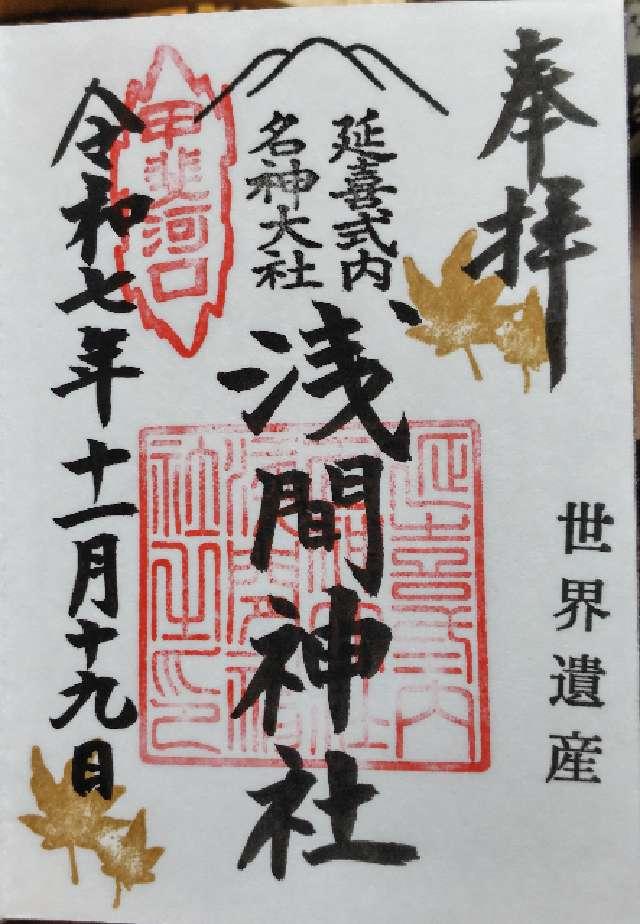 奉拝
世界遺産
延喜式内
名神大社
浅間神社
甲斐河口
令和七年十一月十九日